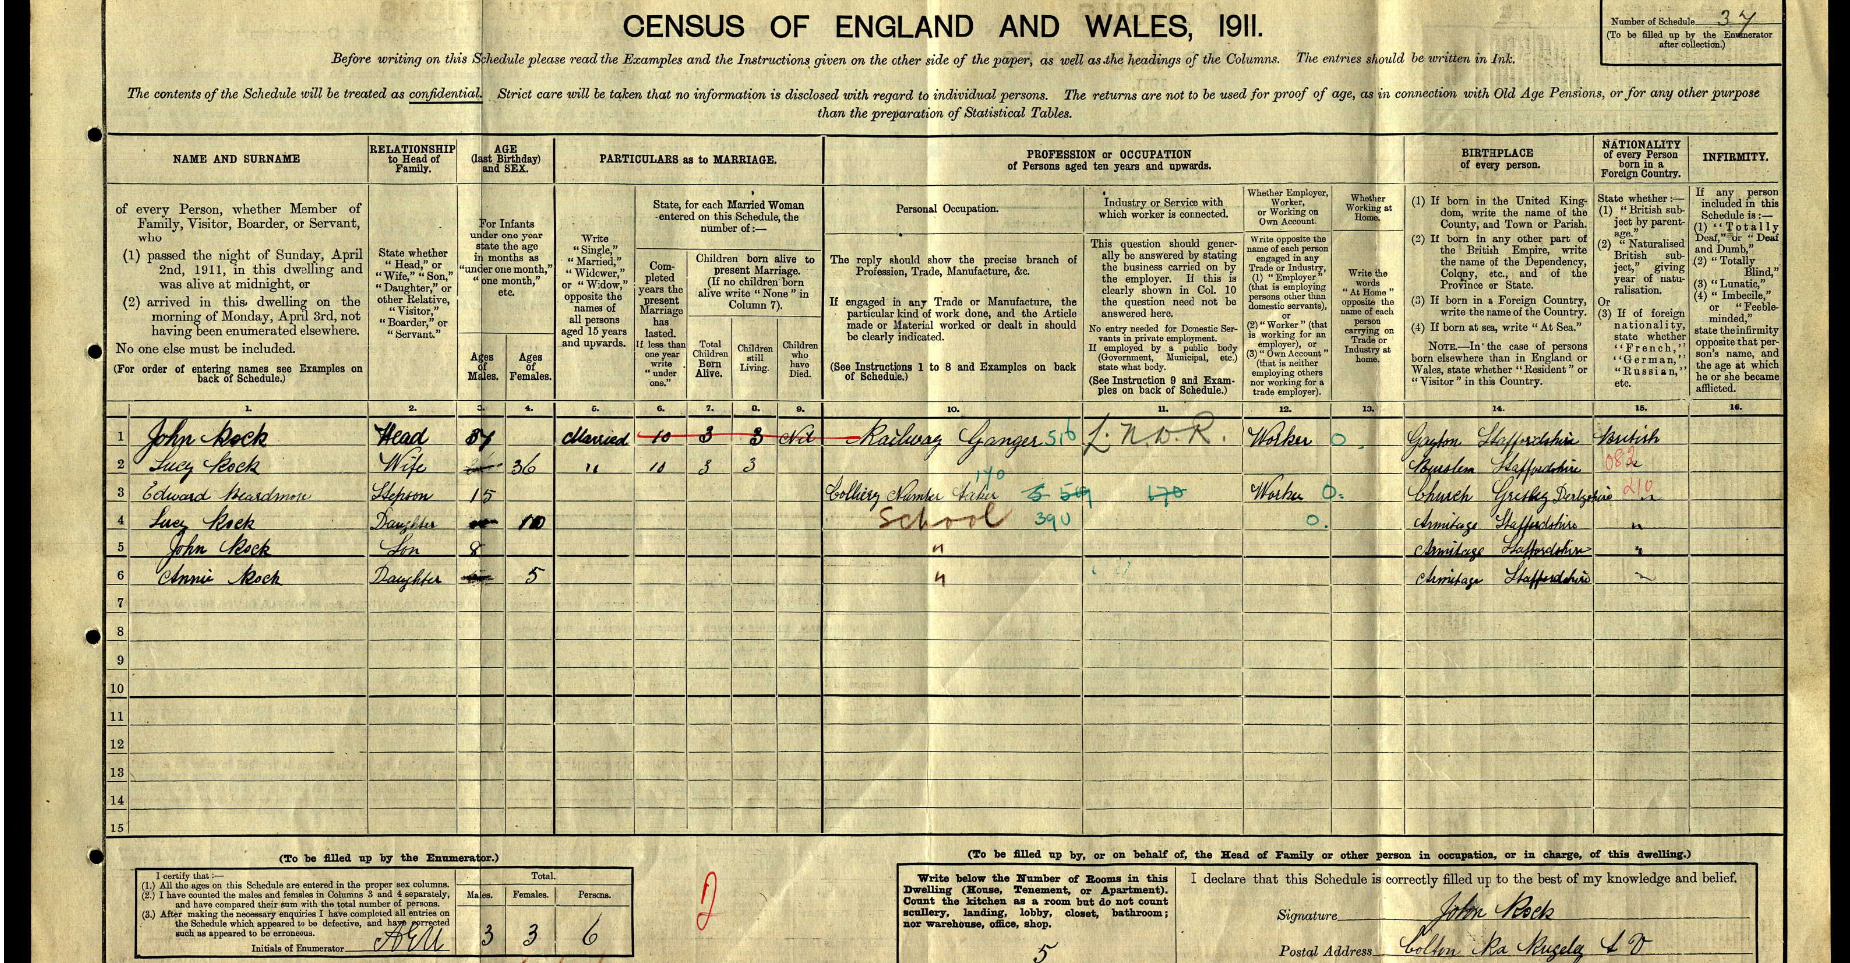 CENSUS OF ENGLAND AND WALES, 1911.
Number of Schedule 37
(To be filled up by the Enumerator after collection.)
Before writing on this Schedule please read the Examples and the Instructions given on the other side of the paper, as well as the headings of the Columns. The entries should be written in Ink.
The contents of the Schedule will be treated as confidential. Strict care will be taken that no information is disclosed with regard to individual persons. The returns are not to be used for proof of age, as in connection with Old Age Pensions, or for any other purpose
than the preparation of Statistical Tables.
NAME AND SURNAME
RELATIONSHIP to Head of Family.
AGE (last Birthday) and SEX.
PARTICULARS as to MARRIAGE.
PROFESSION or OCCUPATION of Persons aged ten years and upwards.
BIRTHPLACE of every person.
NATIONALITY of every Person born in a Foreign Country.
INFIRMITY.
of every Person, whether Member of
Family, Visitor, Boarder, or Servant,
who
(1) passed the night of Sunday, April
2nd, 1911, in this dwelling and
was alive at midnight, or
(2) arrived in this dwelling on the
morning of Monday, April 3rd, not
having been enumerated elsewhere.
No one else must be included.
(For order of entering names see Examples on
back of Schedule.)
State whether
"Head," or
"Wife," "Son,"
"Daughter," or
other Relative,
"Visitor,"
"Boarder," or
"Servant."
For Infants
under one year
state the age
in months as
"under one month,"
"one month,"
etc.
Ages of Males.
Ages of Females.
Write
"Single,"
"Married,"
"Widower,"
or "Widow,"
opposite the
names of
all persons
aged 15 years
and upwards.
State, for each Married Woman
entered on this Schedule, the
number of:—
Completed years the present Marriage has lasted. If less than one year write "under one."
Children born alive to
present Marriage.
(If no children born
alive write "None" in
Column 7).
Total Children Born Alive.
Children still Living.
Children who have Died.
Personal Occupation.
The reply should show the precise branch of
Profession, Trade, Manufacture, &c.
If engaged in any Trade or Manufacture, the
particular kind of work done, and the Article
made or Material worked or dealt in should
be clearly indicated.
(See Instructions 1 to 8 and Examples on back
of Schedule.)
Industry or Service with
which worker is connected.
This question should gener-
ally be answered by stating
the business carried on by
the employer. If this is
clearly shown in Col. 10
the question need not be
answered here.
No entry needed for Domestic Ser-
vants in private employment.
If employed by a public body
(Government, Municipal, etc.)
state what body.
(See Instruction 9 and Exam-
ples on back of Schedule.)
Whether Employer,
Worker,
or Working on
Own Account.
Write opposite the
name of each person
engaged in any
Trade or Industry,
(1) "Employer"
(that is employing
persons other than
domestic servants),
or
(2) "Worker" (that
is working for an
employer), or
(3) "Own Account"
(that is neither
employing others
nor working for a
trade employer).
Whether
Working at
Home.
Write the
words
"At Home"
opposite the
name of each
person
carrying on
Trade or
Industry at
home.
(1) If born in the United King-
dom, write the name of the
County, and Town or Parish.
(2) If born in any other part of
the British Empire, write
the name of the Dependency,
Colony, etc., and of the
Province or State.
(3) If born in a Foreign Country,
write the name of the Country.
(4) If born at sea, write "At Sea."
NOTE.—In the case of persons
born elsewhere than in England or
Wales, state whether "Resident" or
"Visitor" in this Country.
State whether:—
(1) "British sub-
ject by parent-
age."
(2) "Naturalised
British sub-
ject," giving
year of natu-
ralisation.
Or
(3) If of foreign
nationality,
state whether
"French,"
"German,"
"Russian,"
etc.
If any person
included in this
Schedule is:—
(1) "Totally
Deaf," or "Deaf
and Dumb,"
(2) "Totally
Blind,"
(3) "Lunatic,"
(4) "Imbecile,"
or "Feeble-
minded,"
state the infirmity
opposite that per-
son's name, and
the age at which
he or she became
afflicted.
1. 2. 3. 4. 5. 6. 7. 8. 9. 10. 11. 12. 13. 14. 15. 16.
1 John Rock Head 37 Married 10 3 3 Nil Railway Ganger 516 L.N.W.R. Worker 0 Gayton Staffordshire British
2 Lucy Rock Wife 36 " 10 3 3 Burslem Staffordshire 082 "
3 Edward Beardmore Stepson 15 Colliery Number taker 140 170 Worker 0. Church Gresley Derbyshire 210 "
4 Lucy Rock Daughter 10 School 390 0. Armitage Staffordshire "
5 John Rock Son 8 " Armitage Staffordshire "
6 Annie Rock Daughter 5 " Armitage Staffordshire "
7
8
9
10
11
12
13
14
15
(To be filled up by the Enumerator.)
I certify that:—
(1.) All the ages on this Schedule are entered in the proper sex columns.
(2.) I have counted the males and females in Columns 3 and 4 separately,
and have compared their sum with the total number of persons.
(3.) After making the necessary enquiries I have completed all entries on
the Schedule which appeared to be defective, and have corrected
such as appeared to be erroneous.
Initials of Enumerator
Total.
Males. Females. Persons.
3 3 6
(To be filled up by, or on behalf of, the Head of Family or other person in occupation, or in charge, of this dwelling.)
Write below the Number of Rooms in this
Dwelling (House, Tenement, or Apartment).
Count the kitchen as a room but do not count
scullery, landing, lobby, closet, bathroom;
nor warehouse, office, shop.
5
I declare that this Schedule is correctly filled up to the best of my knowledge and belief.
Signature John Rock
Postal Address Colton Nr Rugeley